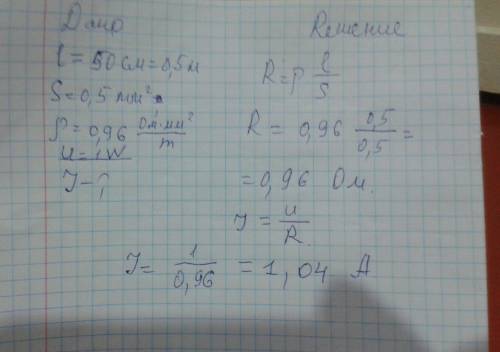 Дано
l = 50 см = 0,5 м
S = 0,5 mm²
ρ = 0,96 Ом·мм²/m
U = 1 V
J - ?
Решение
R = ρ l/S
R = 0,96 0,5/0,5 =
= 0,96 Ом.
J = U/R
J = 1/0,96 = 1,04 А